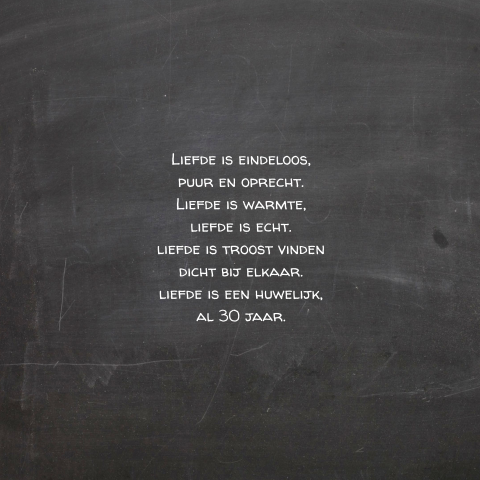 Liefde is eindeloos,
puur en oprecht.
Liefde is warmte,
liefde is echt.
liefde is troost vinden
dicht bij elkaar.
liefde is een huwelijk,
al 30 jaar.